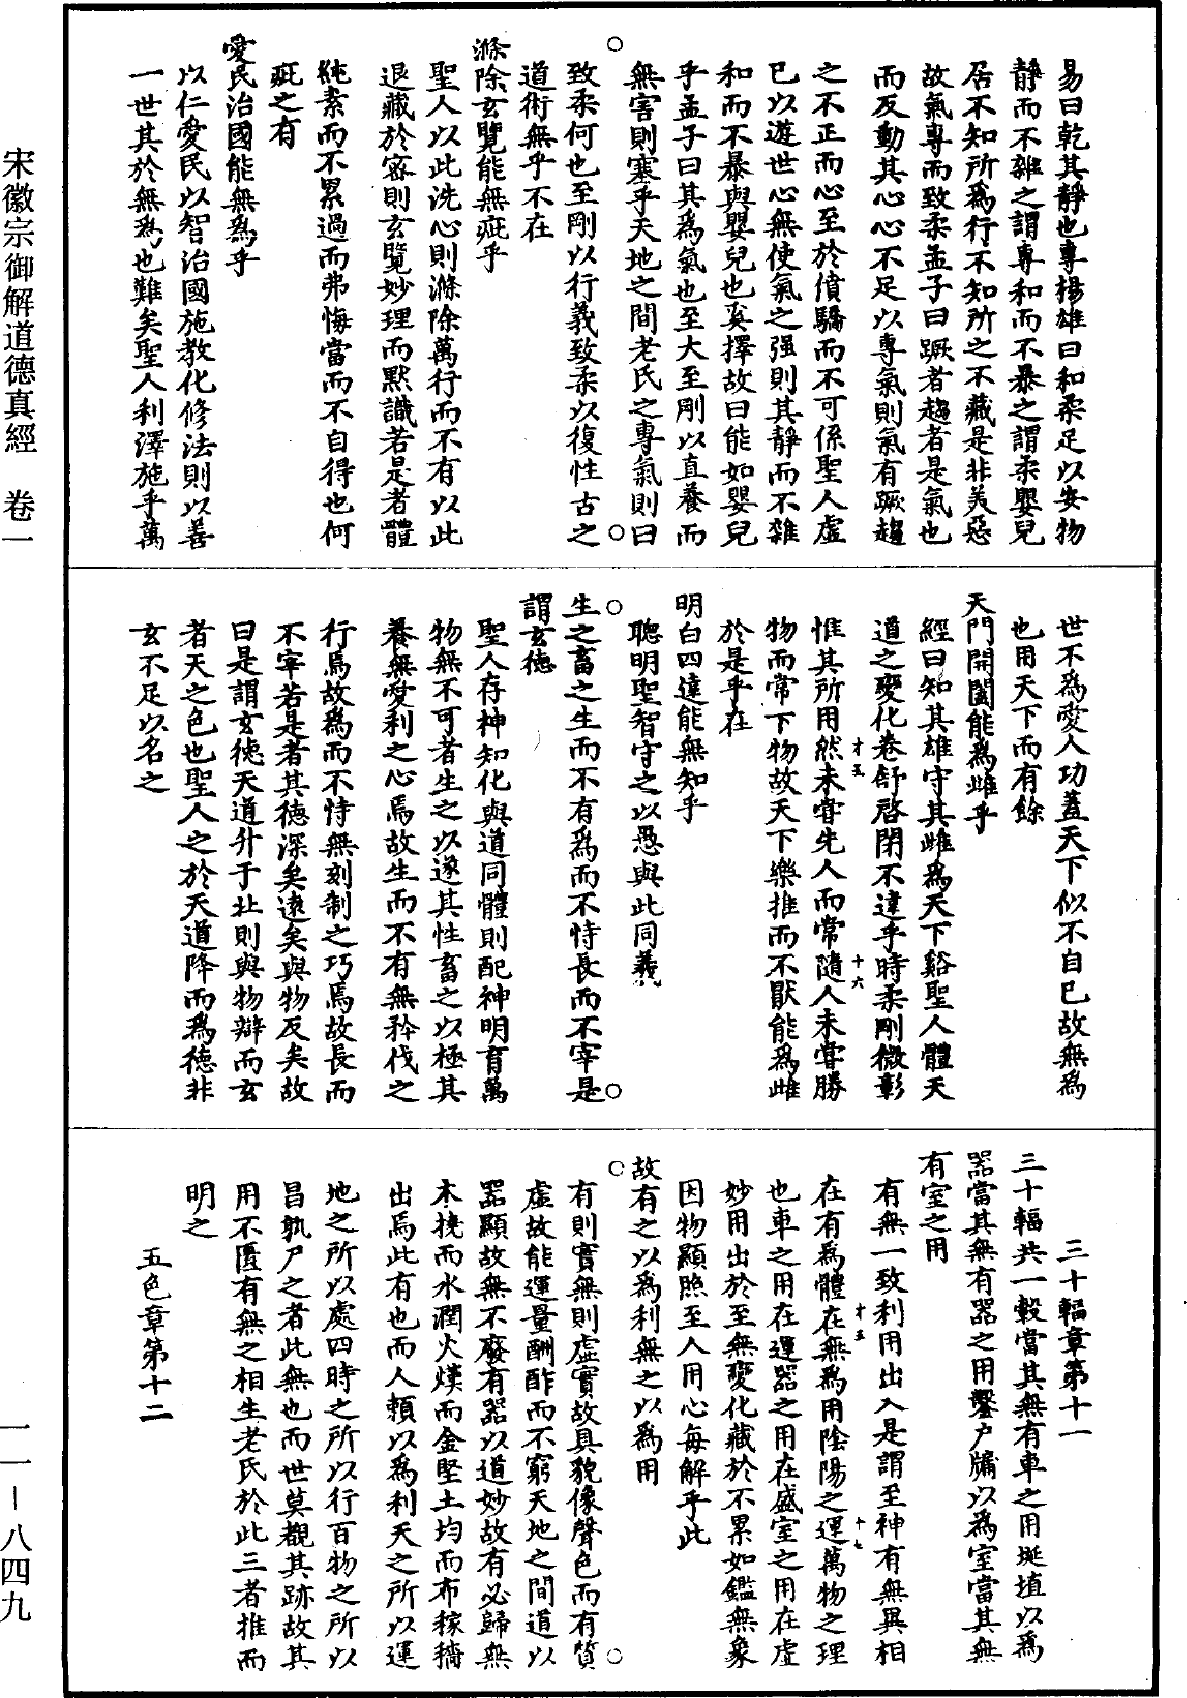 易曰乾其靜也專楊雄曰和柔足以安物
靜而不雜之謂專和而不暴之謂柔嬰兒
居不知所爲行不知所之不藏是非美惡
故氣專而致柔孟子曰蹶者趨者是氣也
而反動其心心不足以專氣則氣有蹶趨
之不正而心至於僨驕而不可係聖人虛
已以遊世心無使氣之强則其靜而不雜
和而不暴與嬰兒也奚擇故曰能如嬰兒
乎孟子曰其爲氣也至大至剛以直養而
無害則塞乎天地之間老氏之專氣則曰
致柔何也至剛以行義致柔以復性古之
道術無乎不在
滌除玄覽能無疵乎
聖人以此洗心則滌除萬行而不有以此
退藏於密則玄覽妙理而默識若是者體
純素而不累過而弗悔當而不自得也何
疵之有
愛民治國能無爲乎
以仁愛民以智治國施教化修法則以善
一世其於無爲也難矣聖人利澤施乎萬
世不爲愛人功蓋天下似不自已故無爲
也用天下而有餘
天門開闔能爲雌乎
經曰知其雄守其雌爲天下谿聖人體天
道之變化卷舒啓閉不違乎時柔剛微彰
惟其所用然未嘗先人而常隨人未嘗勝
物而常下物故天下樂推而不厭能爲雌
於是乎在
明白四達能無知乎
聰明聖智守之以愚與此同義
生之畜之生而不有爲而不恃長而不宰是
謂玄德
聖人存神知化與道同體則配神明育萬
物無不可者生之以遂其性畜之以極其
養無愛利之心焉故生而不有無矜伐之
行焉故爲而不恃無刻制之巧焉故長而
不宰若是者其德深矣遠矣與物反矣故
曰是謂玄德天道升于北則與物辯而玄
者天之色也聖人之於天道降而爲德非
玄不足以名之
三十輻章第十一
三十輻共一轂當其無有車之用埏埴以爲
器當其無有器之用鑿户牖以爲室當其無
有室之用
有無一致利用出入是謂至神有無異相
在有爲體在無爲用陰陽之運萬物之理
也車之用在運器之用在盛室之用在虛
妙用出於至無變化藏於不累如鑑無象
因物顯照至人用心每解乎此
故有之以爲利無之以爲用
有則實無則虛實故具貌像聲色而有質
虛故能運量酬酢而不窮天地之間道以
器顯故無不廢有器以道妙故有必歸無
木撓而水潤火熯而金堅土均而布稼穡
出焉此有也而人賴以爲利天之所以運
地之所以處四時之所以行百物之所以
昌孰尸之者此無也而世莫覩其跡故其
用不匱有無之相生老氏於此三者推而
明之
五色章第十二
十五
十六
十五
十七
宋徽宗御解道德真經　卷一
一一－八四九